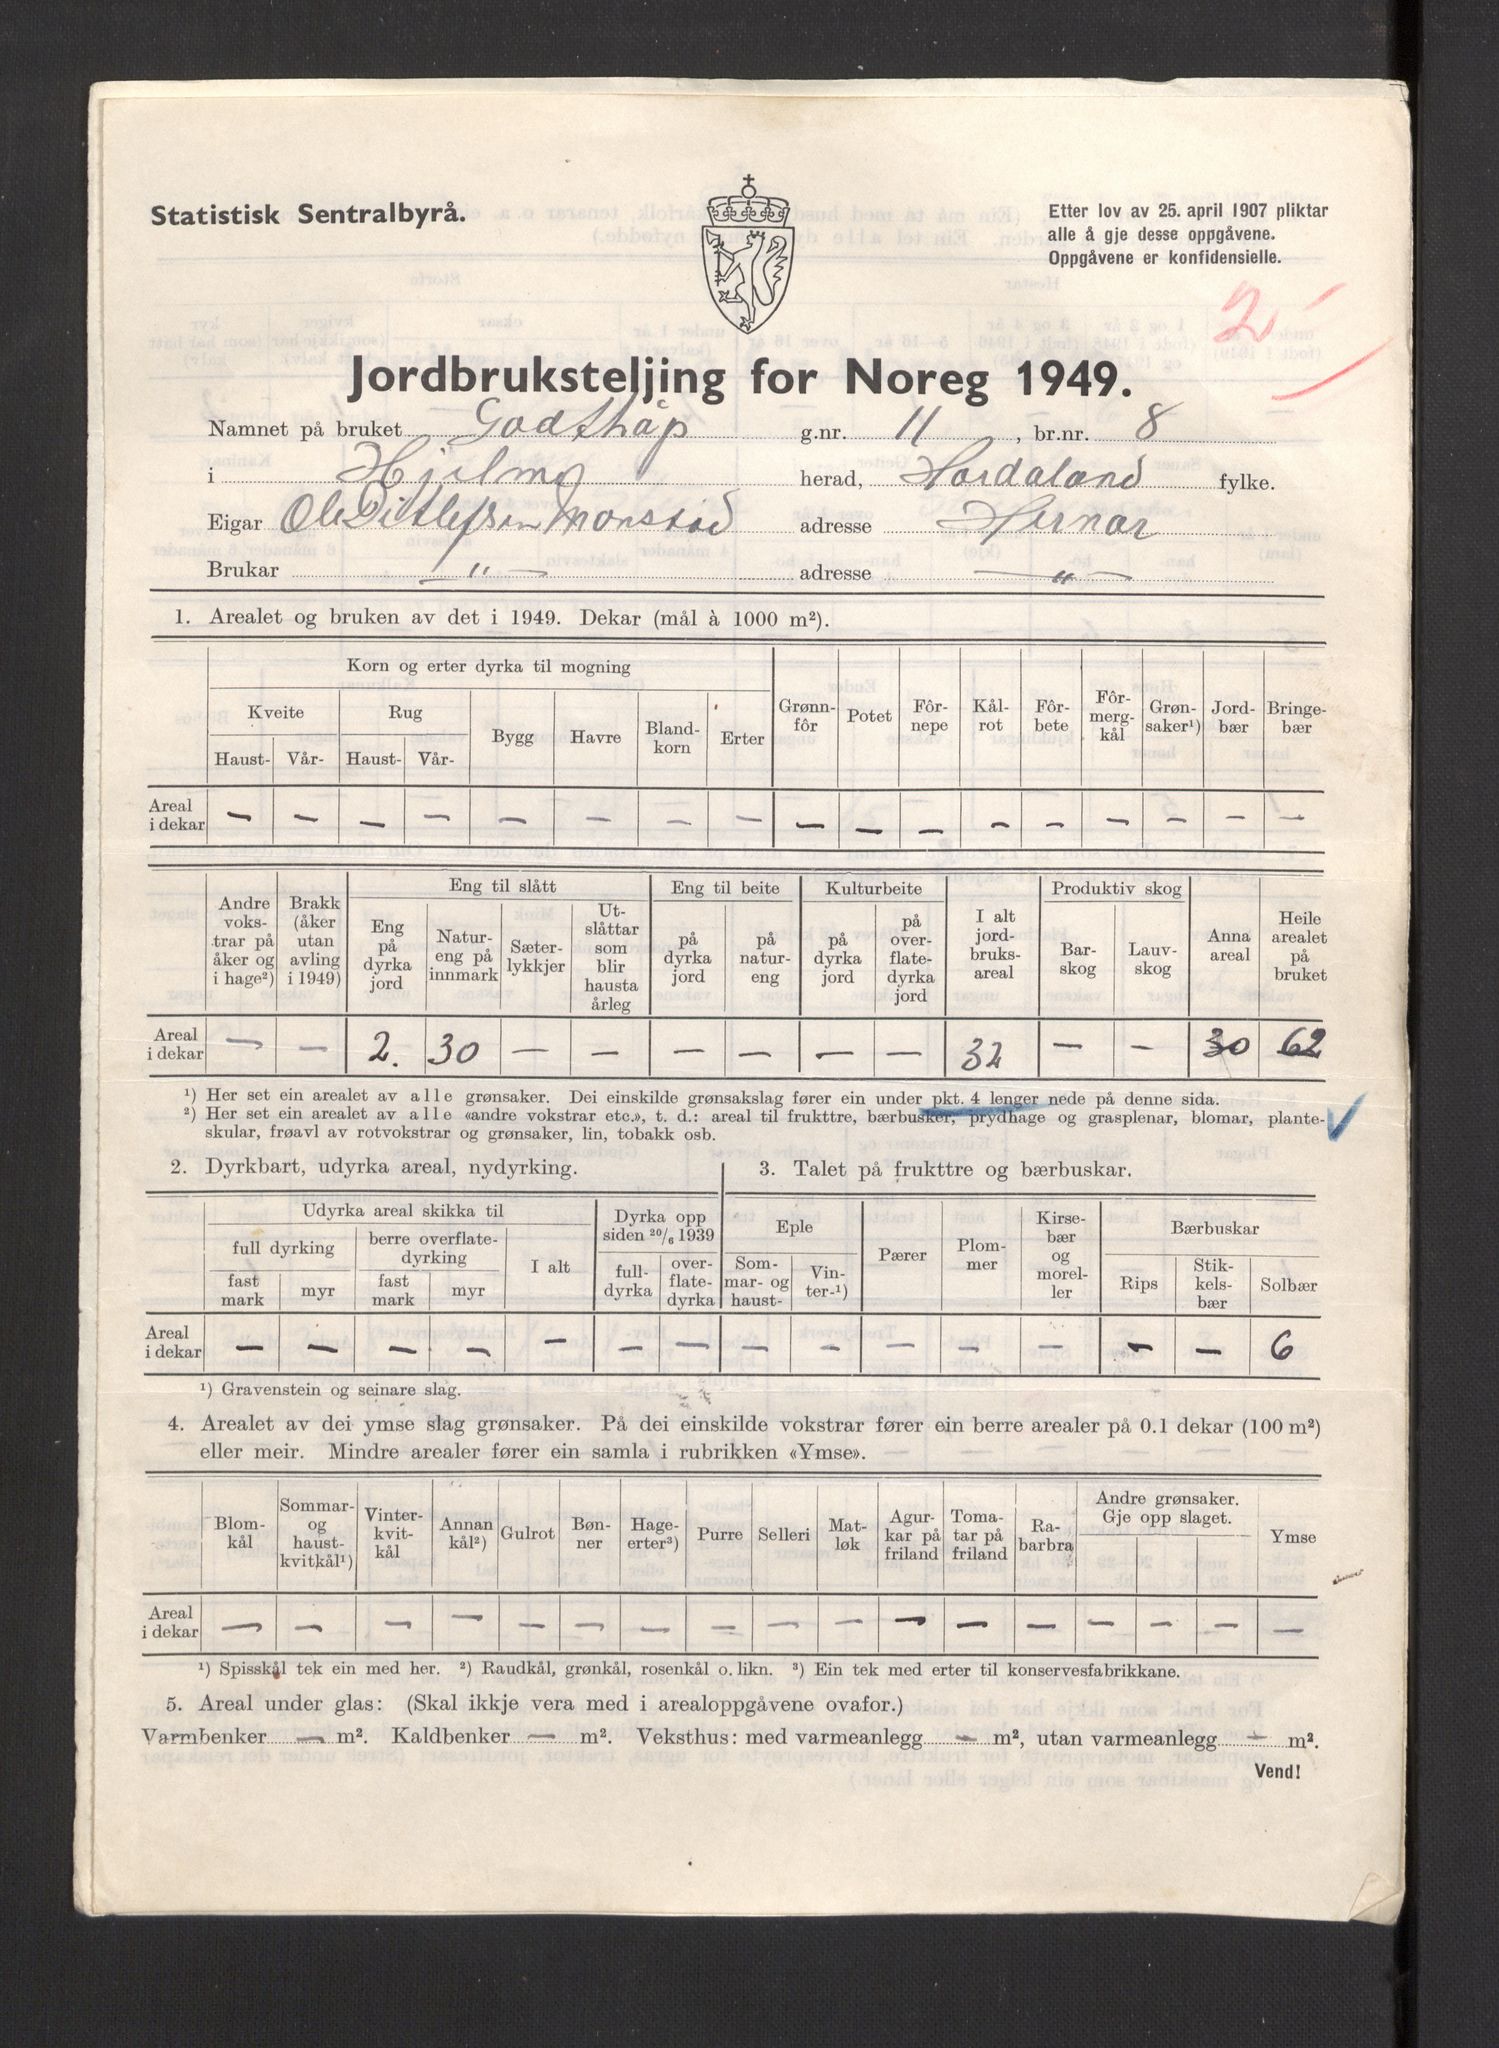 Statistisk Sentralbyrå.
Etter lov av 25. april 1907 pliktar
alle å gje desse oppgåvene.
Oppgåvene er konfidensielle.
2
Jordbruksteljing for Noreg 1949.
Namnet på bruket Godthåp g.nr. 11, br.nr. 8
i Hjelme herad, Hordaland fylke.
Eigar Ole Ditlefsen Monstad adresse Hernar
Brukar —〃— adresse —〃—
1. Arealet og bruken av det i 1949. Dekar (mål à 1000 m²).
Korn og erter dyrka til mogning
Kveite Rug Bygg Havre Bland-korn Erter Grønn-fôr Potet Fôr-nepe Kål-rot Fôr-bete Fôr-mergkål Grøn-saker¹) Jord-bær Bringe-bær
Haust- Vår- Haust- Vår-
Areal i dekar — — — — — — — — — — — — — — — — —
Andre vokstrar på åker og i hage²) Brakk (åker utan avling i 1949) Eng til slått Eng til beite Kulturbeite I alt jordbruksareal Produktiv skog Anna areal Heile arealet på bruket
Eng på dyrka jord Natureng på innmark Sæterlykkjer Utslåttar som blir hausta årleg på dyrka jord på natureng på dyrka jord på overflatedyrka jord Barskog Lauvskog
Areal i dekar — — 2. 30 — — — — — — 32 — — 30 62
¹) Her set ein arealet av alle grønsaker. Dei einskilde grønsakslag fører ein under pkt. 4 lenger nede på denne sida.
²) Her set ein arealet av alle «andre vokstrar etc.», t. d.: areal til frukttre, bærbusker, prydhage og grasplenar, blomar, plante-
skular, frøavl av rotvokstrar og grønsaker, lin, tobakk osb.
2. Dyrkbart, udyrka areal, nydyrking.
3. Talet på frukttre og bærbuskar.
Udyrka areal skikka til Dyrka opp siden 20/6 1939 Eple Pærer Plommer Kirsebær og moreller Bærbuskar
full dyrking berre overflatedyrking I alt fulldyrka overflatedyrka Sommar- og haust- Vinter-¹) Rips Stikkelsbær Solbær
fast mark myr fast mark myr
Areal i dekar — — — — — — — — — — — — — — 6
¹) Gravenstein og seinare slag.
4. Arealet av dei ymse slag grønsaker. På dei einskilde vokstrar fører ein berre arealer på 0.1 dekar (100 m²)
eller meir. Mindre arealer fører ein samla i rubrikken «Ymse».
Blomkål Sommar- og haustkvitkål¹) Vinterkvitkål Annan kål²) Gulrot Bønner Hageerter³) Purre Selleri Matløk Agurkar på friland Tomatar på friland Rabarbra Andre grønsaker. Gje opp slaget. Ymse
Areal i dekar — — — — — — — — — — — — — — — — —
¹) Spisskål tek ein med her. ²) Raudkål, grønkål, rosenkål o. likn. ³) Ein tek med erter til konservesfabrikkane.
5. Areal under glas: (Skal ikkje vera med i arealoppgåvene ovafor.)
Varmbenker — m². Kaldbenker — m². Veksthus: med varmeanlegg — m², utan varmeanlegg — m².
Vend!